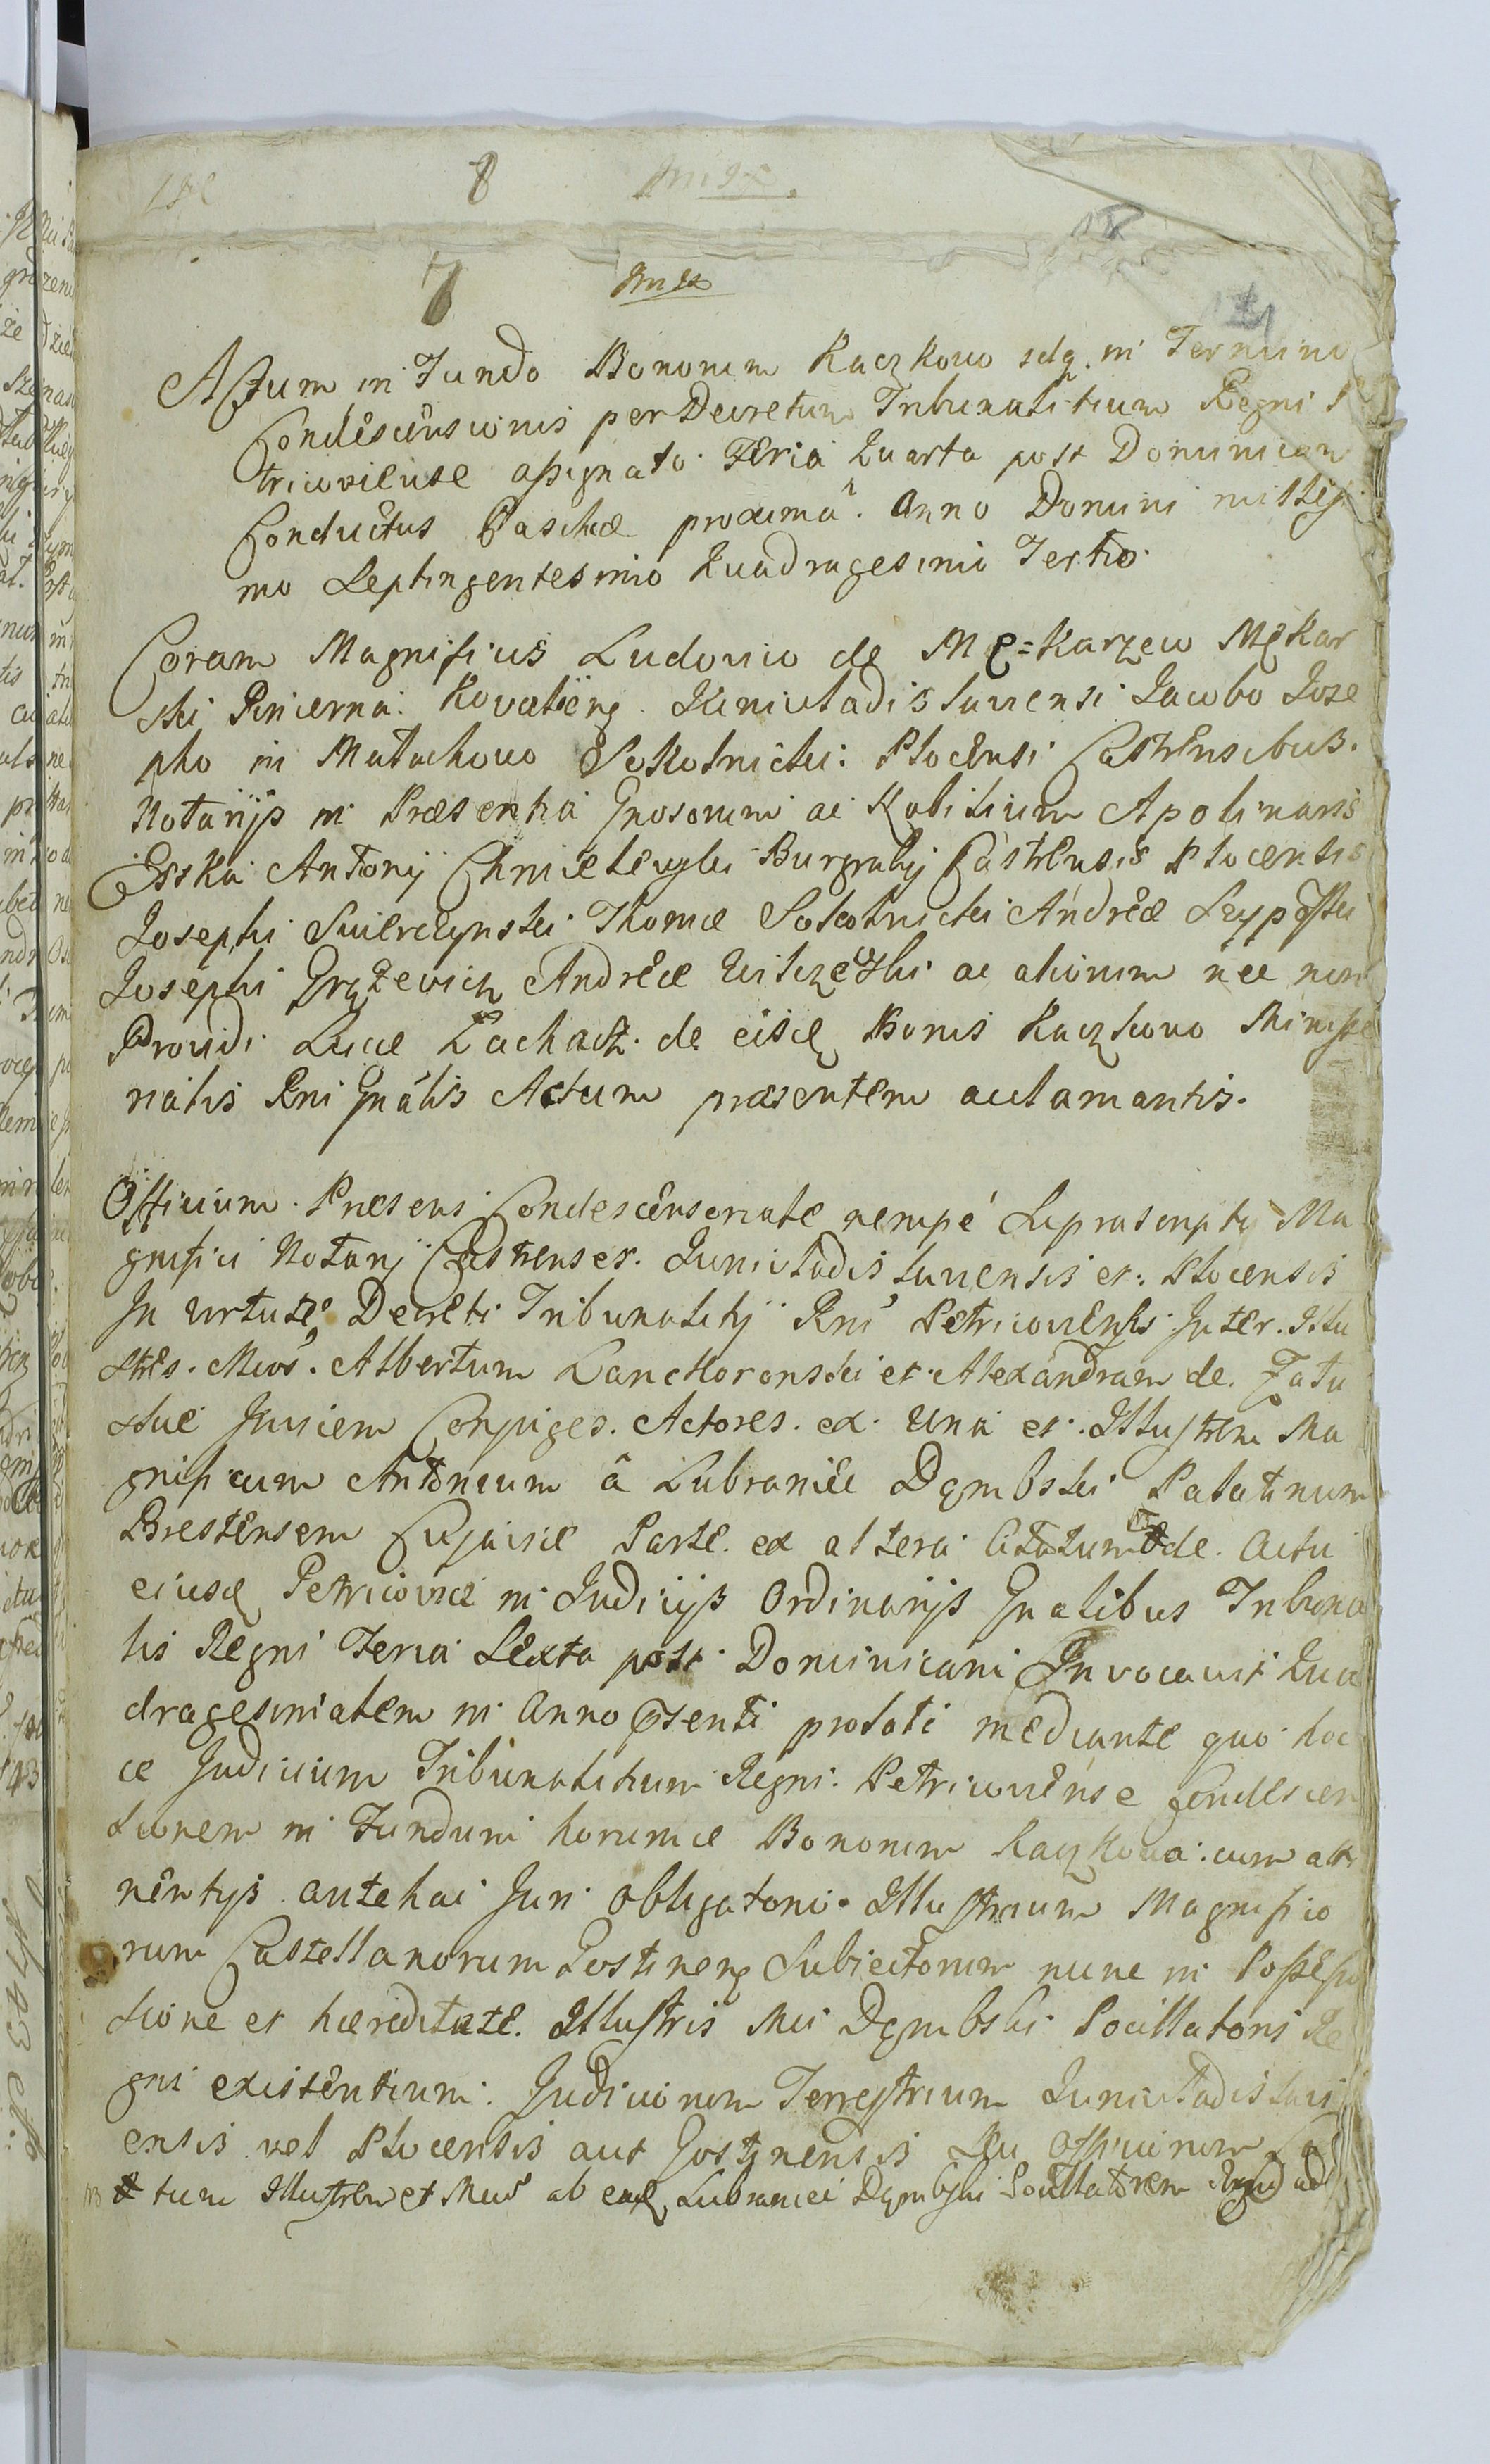 8
7
Actum in Fundo Bonorum Kaczkowo sdq. in Termino
Condescensionis per Decretum Tribunalitium Regni P
tricoviense assignato Feria Quarta post Dominicam
Conductus Paschae proximâ. Anno Domini millesi
mo Septingentesimo Quadragesimo Tertio.
Coram Magnificis Ludovico de Mę=karzew Mękar
ski Pincerna Juniuladislaviensi Jacobo Jose
pho in Małachowo Sokolnicki: Plocensi Castrensibus.
Notarijs in Praesentia Gnosorum ac Nobilium Apolinaris
Esska Antonij Burgrabij Castrensis Plocensis
Josephi Swierczynski Thomae Sokolnicki Andreae
Josephi Andreae ac aliorum nec non
Providi Lucae de eisd Bonis Kaczkowo Ministe
rialis Rni Gnâlis Actum praesentem acclamantis.
Officium Praesens Condescensoriale nempé Suprascripti Ma
gnifici Notarij Castrenses. Juniuladislaviensis et Plocensis
In virtute Decreti Tribunalitij Rni Petricoviensis Inter. Illu
stres. Mcos. Albertum Lanckoronski et Alexandram de
skie Conjuges. Actores. ex una et. Illustrem Ma
gnificum Antonium â Lubraniec Dąmbski Palatinum
Brestensem Cujaviae Parte. ex altera Citatum de. Actu
eiusd Petricoviae in Judicijs Ordinarijs Gnalibus Tribuna
lis Regni Feria Sexta post Dominicam Invocavit Qua
dragesimalem in Anno psenti prolati mediante quo hoc
ce Judicium Tribunalitium Regni. Petricoviense Condescen
sionem in Fundum horumce Bonorum Kaczkowo cum atti
nentijs antehac Juri obligatorio Illustrium Magnifico
rum Castellanorum Gostinen Subiectorum nunc in Possess
sione et haereditate. Illustris Mci Dąmbski Pocillatoris Re
gni existentium. Judiciorum Terrestrium Juniuladislavi
ensis vel Plocensis aut Gostinensis Seu Officiorum Ca
tum Illustrem et Mcum ab ead Lubraniec Dąmbski Pocillatorem Regni ad